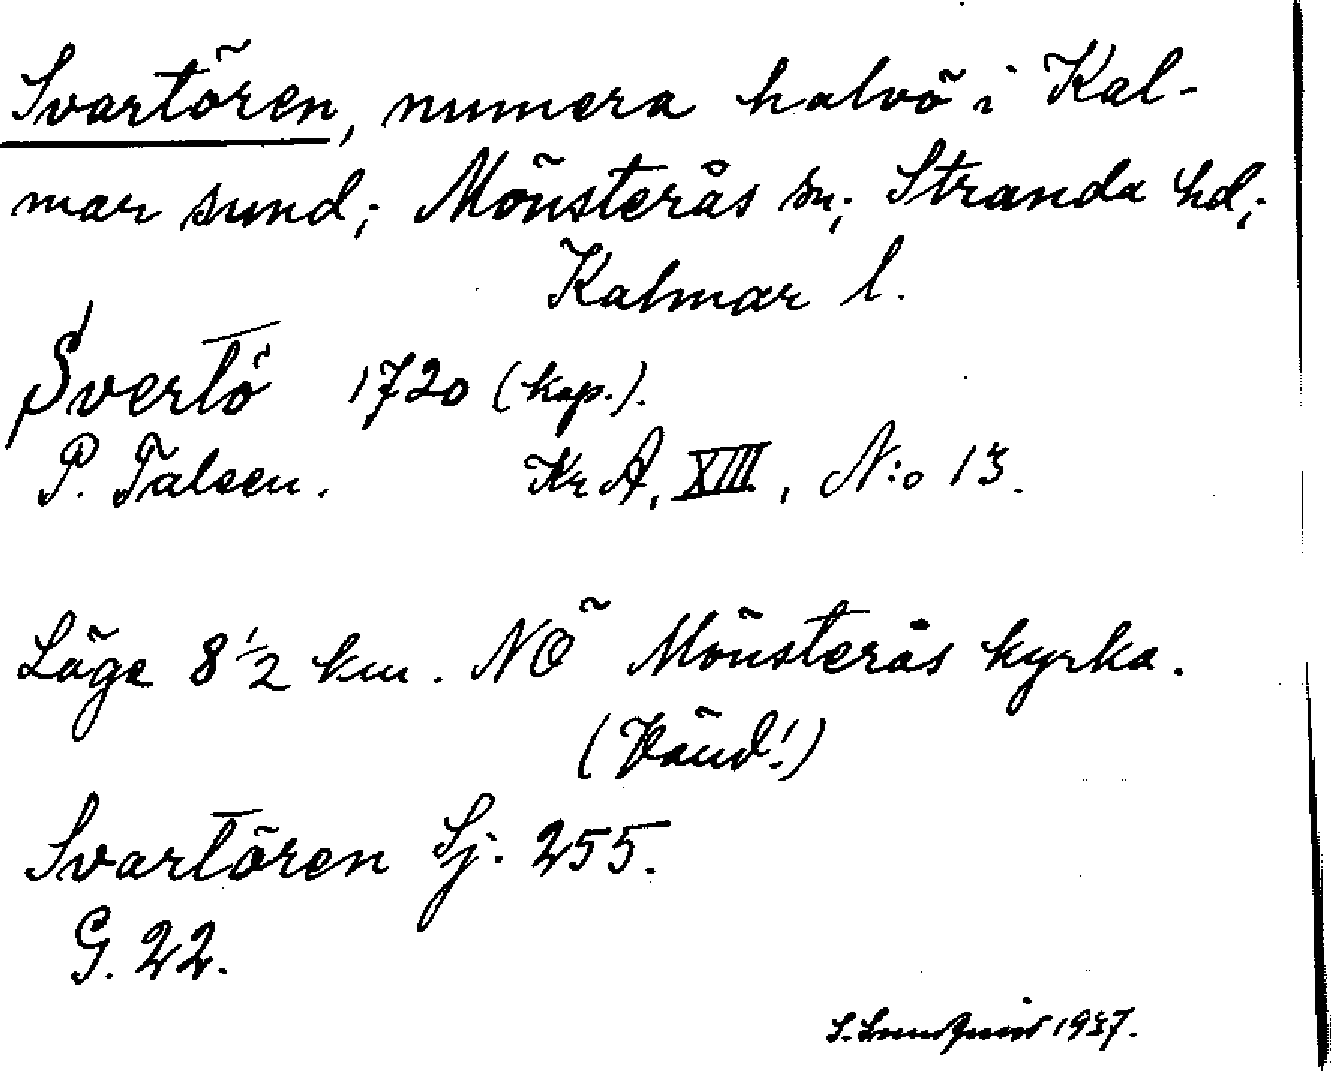 Svartören, numera halvö i Kal-
mar sund; Mönsterås sn; Stranda hd;
Kalmar l.
Svertö 1720 (kop.).
P. Falsen. Kr A, XIII, N:o 13.
Läge 8 1/2 km. NÖ Mönsterås kyrka.
(Vänd!)
Svartören Sj. 255.
G. 22.
S. Lundquist 1937.